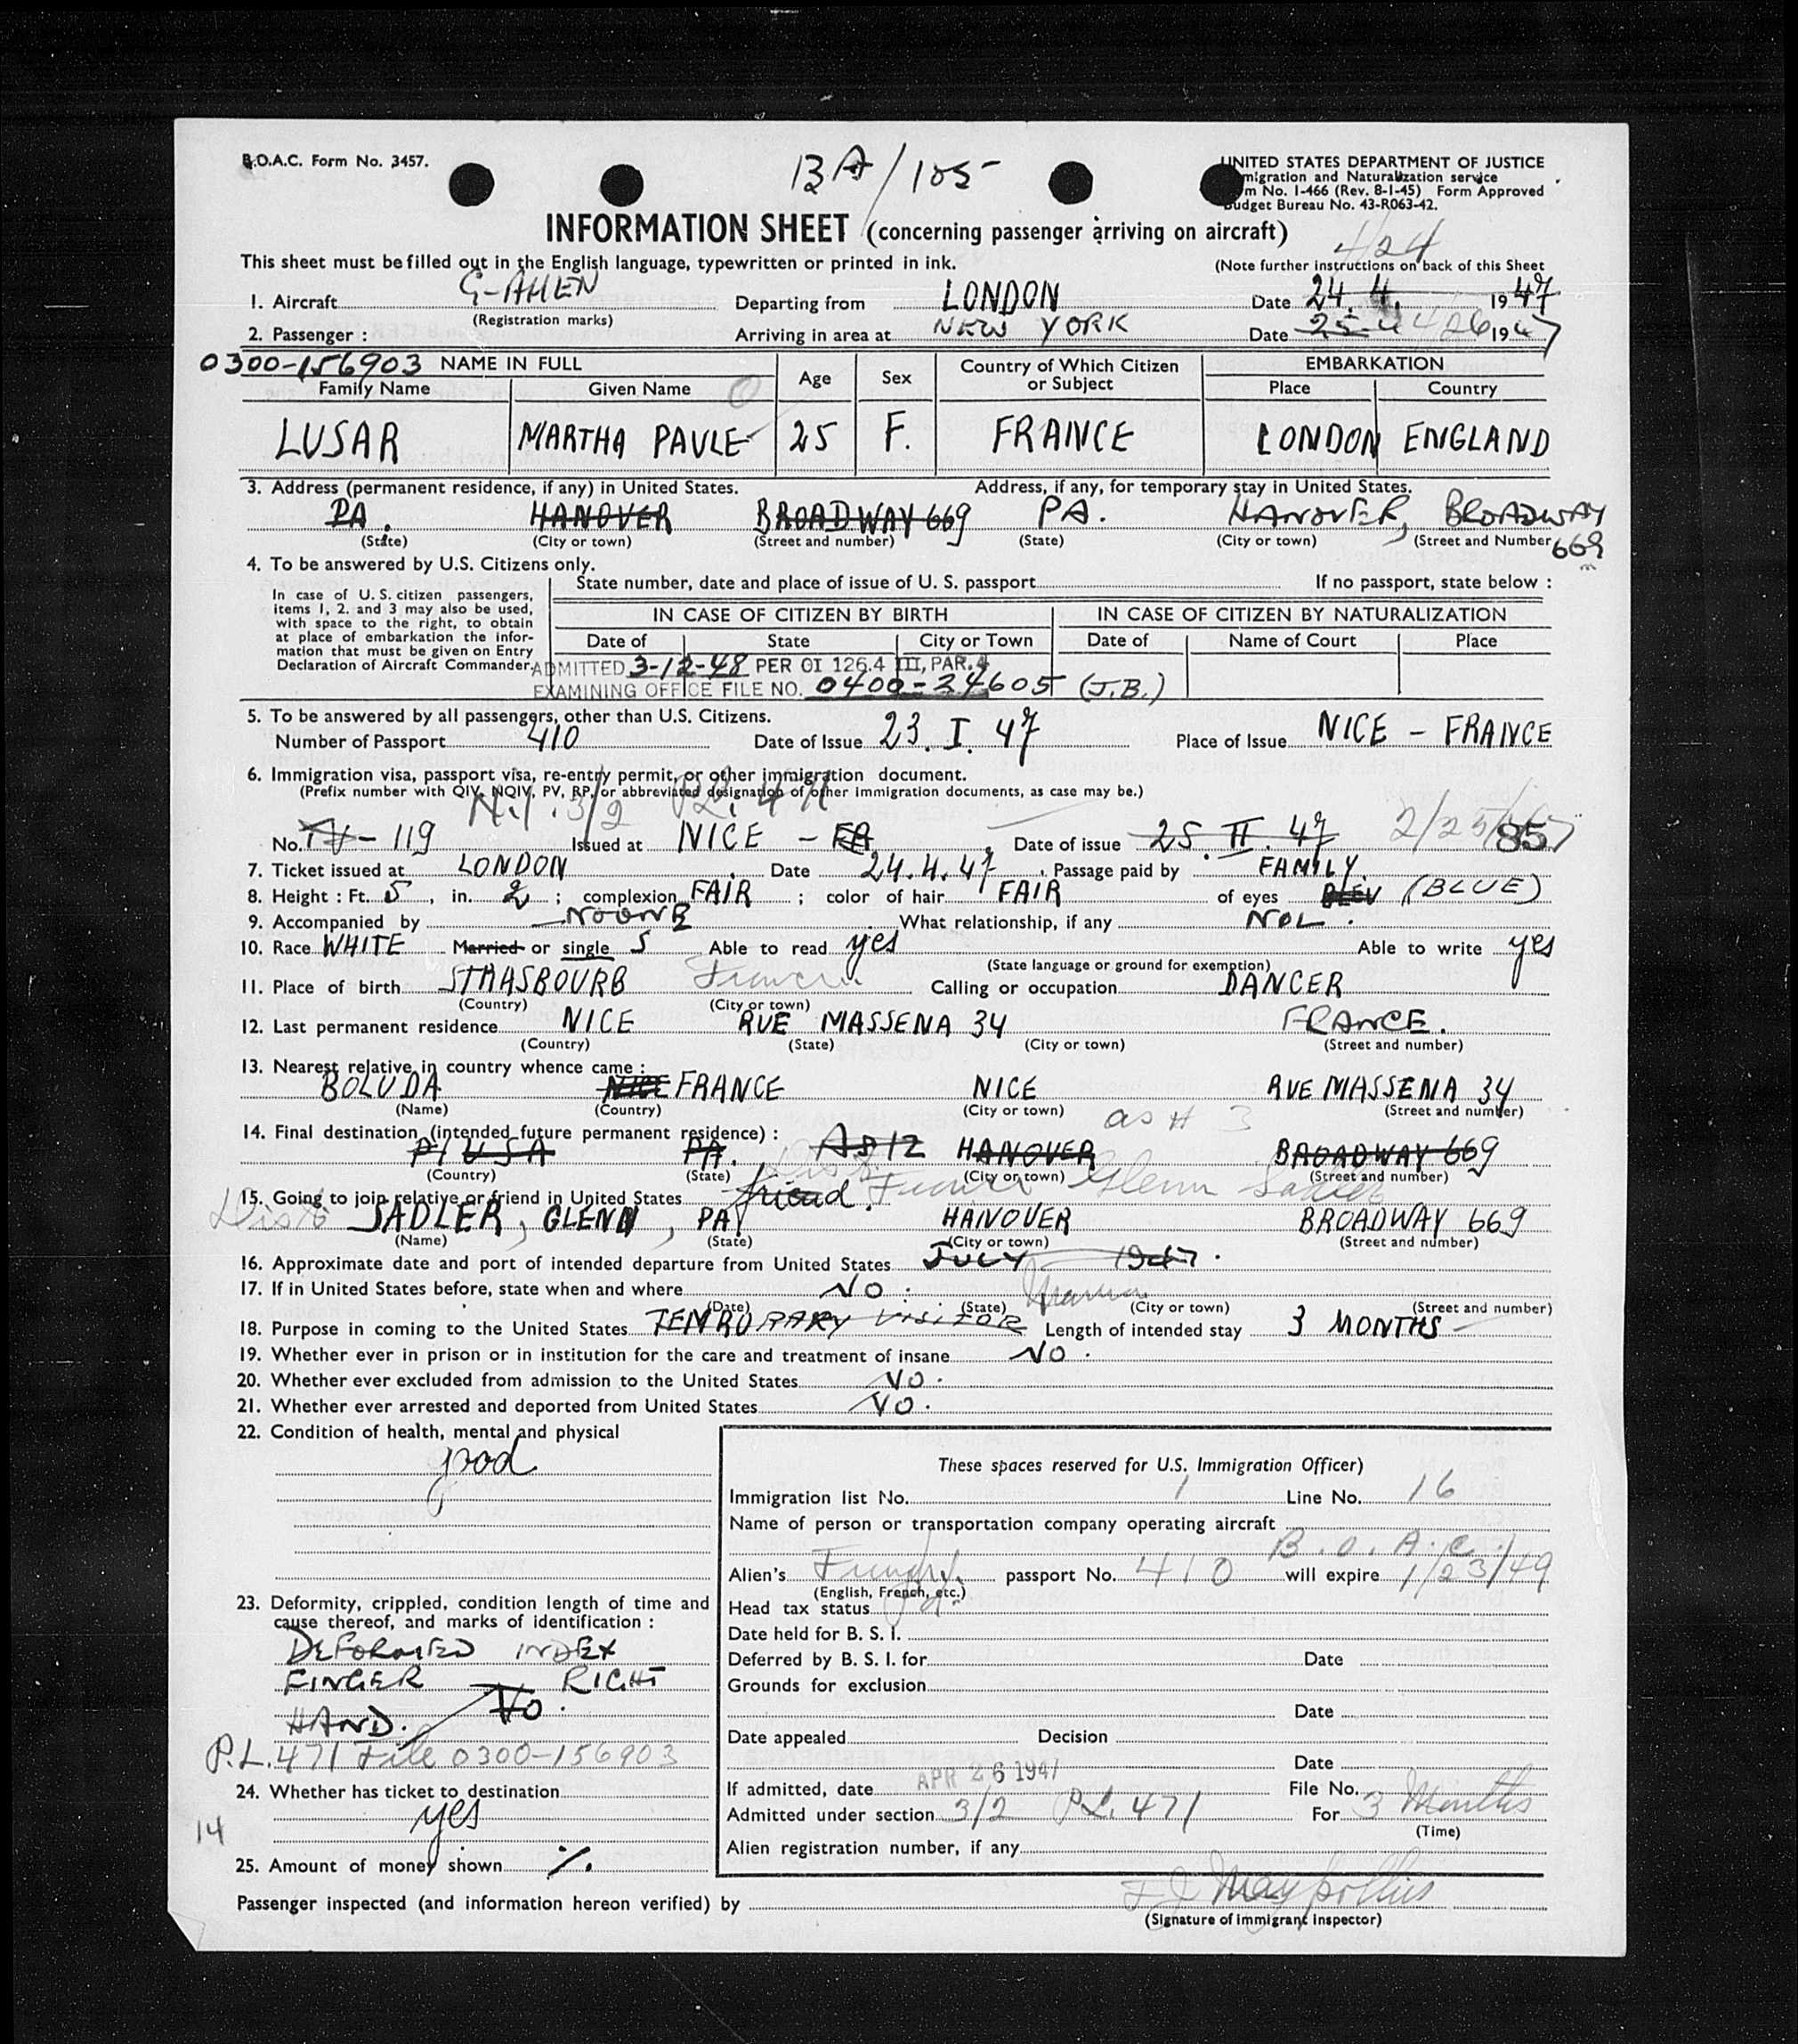 B.O.A.C. Form No. 3457.
BA/105
UNITED STATES DEPARTMENT OF JUSTICE
migration and Naturalization service
m No. I-466 (Rev. 8-1-45) Form Approved
udget Bureau No. 43-R063-42.
INFORMATION SHEET (concerning passenger arriving on aircraft)
4/24
This sheet must be filled out in the English language, typewritten or printed in ink.
(Note further instructions on back of this Sheet
1. Aircraft G-AHEN Departing from LONDON Date 24. 4. 1947
(Registration marks)
2. Passenger : Arriving in area at NEW YORK Date 25-4 4/26 1947
0300-156903 NAME IN FULL Age Sex Country of Which Citizen or Subject EMBARKATION
Family Name Given Name Place Country
LUSAR MARTHA PAULE 25 F. FRANCE LONDON ENGLAND
3. Address (permanent residence, if any) in United States. Address, if any, for temporary stay in United States.
PA. HANOVER BROADWAY 669 PA. HANOVER, BROADWAY 669
(State) (City or town) (Street and number) (State) (City or town) (Street and Number
4. To be answered by U.S. Citizens only.
In case of U.S. citizen passengers, items 1, 2. and 3 may also be used, with space to the right, to obtain at place of embarkation the information that must be given on Entry Declaration of Aircraft Commander.
State number, date and place of issue of U. S. passport If no passport, state below :
IN CASE OF CITIZEN BY BIRTH IN CASE OF CITIZEN BY NATURALIZATION
Date of State City or Town Date of Name of Court Place
ADMITTED 3-12-48 PER OI 126.4 III, PAR. 4
EXAMINING OFFICE FILE NO. 0400-24605 (J.B.)
5. To be answered by all passengers, other than U.S. Citizens.
Number of Passport 410 Date of Issue 23. I. 47 Place of Issue NICE - FRANCE
6. Immigration visa, passport visa, re-entry permit, or other immigration document.
(Prefix number with QIV, NQIV, PV, RP, or abbreviated designation of other immigration documents, as case may be.)
3/2 P.L. 471
No. - 119 Issued at NICE - Date of issue 25. II. 47 2/25/47 857
7. Ticket issued at LONDON Date 24.4.47 Passage paid by FAMILY.
8. Height : Ft. 5, in. 2 ; complexion FAIR ; color of hair FAIR of eyes (BLUE)
9. Accompanied by NOONE What relationship, if any NOL.
10. Race WHITE Married or single S Able to read yes Able to write yes
(State language or ground for exemption)
11. Place of birth STRASBOURB France Calling or occupation DANCER
(Country) (City or town)
12. Last permanent residence NICE RUE MASSENA 34 FRANCE.
(Country) (State) (City or town) (Street and number)
13. Nearest relative in country whence came :
BOLUDA NICE FRANCE NICE RUE MASSENA 34
(Name) (Country) (City or town) (Street and number)
as # 3
14. Final destination (intended future permanent residence) :
USA PA. HANOVER BROADWAY 669
(Country) (State) (City or town) (Street and number)
15. Going to join relative or friend in United States friend. Glenn Sadler
SADLER, GLENN, PA HANOVER BROADWAY 669
(Name) (State) (City or town) (Street and number)
16. Approximate date and port of intended departure from United States JULY 1947.
17. If in United States before, state when and where NO.
(Date) (State) (City or town) (Street and number)
18. Purpose in coming to the United States TEMRORARY VISITOR Length of intended stay 3 MONTHS
19. Whether ever in prison or in institution for the care and treatment of insane NO.
20. Whether ever excluded from admission to the United States NO.
21. Whether ever arrested and deported from United States NO.
22. Condition of health, mental and physical
good
23. Deformity, crippled, condition length of time and cause thereof, and marks of identification :
DEFORMED INDEX
FINGER RIGHT
HAND. NO.
P.L. 471 File 0300-156903
24. Whether has ticket to destination
yes
14
25. Amount of money shown %.
These spaces reserved for U.S. Immigration Officer)
Immigration list No. 1 Line No. 16
Name of person or transportation company operating aircraft
B.O.A.C.
Alien's French passport No. 410 will expire 1/23/49
(English, French, etc.)
Head tax status
Date held for B. S. I.
Deferred by B. S. I. for Date
Grounds for exclusion
Date
Date appealed Decision
Date
If admitted, date APR 26 1947 File No.
Admitted under section 3/2 P.L. 471 For 3 Months
(Time)
Alien registration number, if any
Passenger inspected (and information hereon verified) by
(Signature of Immigrant Inspector)